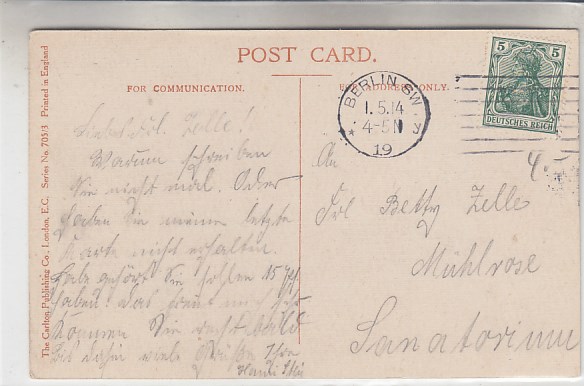 POST CARD.
FOR COMMUNICATION.
FOR ADDRESS ONLY.
The Carlton Publishing Co., London, E.C. Series No. 705/3 Printed in England
BERLIN SW
1.5.14
4-5N
19
5 5
DEUTSCHES REICH
4.-
Liebes Frl. Zelle!
Warum schreiben
Sie nicht mal. Oder
haben Sie meine letzte
Karte nicht erhalten.
Habe gehört Sie sollen 15
haben! Das freut mich
können Sie recht bald
bis dahin viele Grüße Ihre
An
Frl Betty Zelle
Mühlrose
Sanatorium